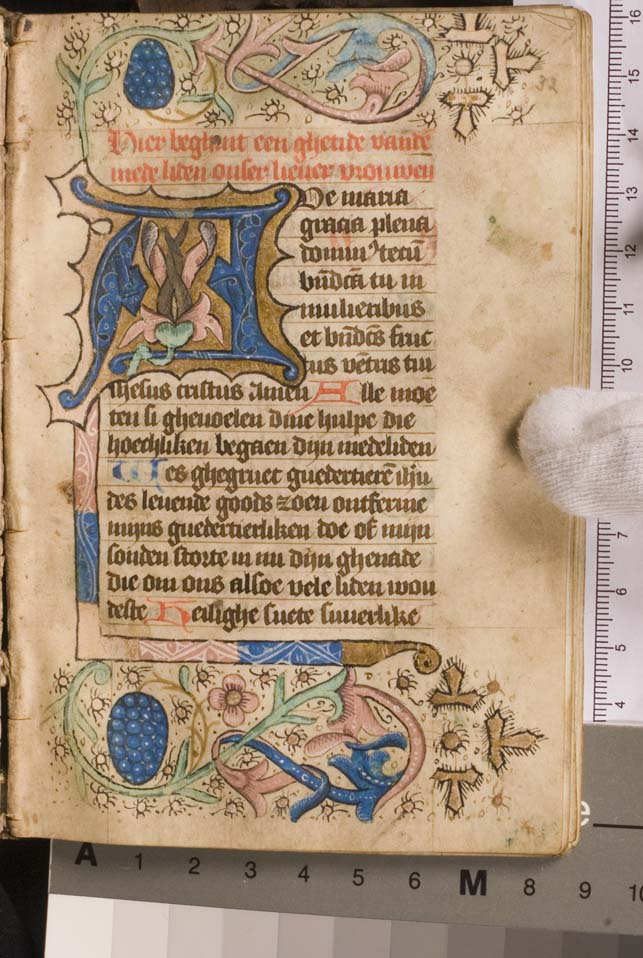 Hier beghint een ghetide vande
mede liden onser liever vrouwen
Ave maria
gracia plena
domin9 tecū
bn̄dcā tu in
mulieribus
et bn̄dcs fruc
tus vētris tui
ihesus cristus Amen Alle moe
ten si ghevoelen dine hulpe die
hoechliken begaen dijn medeliden
Wes ghegruet guedertierē ihū
des levende goods zoen ontferme
mijns guedertierliken doe of mijn
sonden storte in mi dijn ghenade
die om ons alsoe vele liden wou
deste Heilighe suete suverlike
32
16
15
14
13
12
11
10
7
6
5
4
A 1 2 3 4 5 6 M 8 9 10